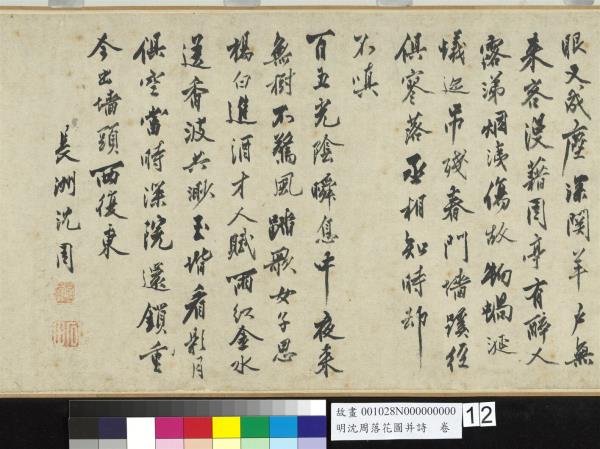 眼又成塵深関羊戶無
来客漫藉周亭有醉人
露涕烟洟傷故物蝸涎
蟻迹吊残春門墻蹊徑
俱寥落丞相知時却
不嗔
百五光陰瞬息中夜来
無樹不驚風踏歌女子思
楊白進酒才人賦雨紅金水
送香波共渺玉堦看影月
俱空當時深院還鎖重
今出墻頭西復東
長洲沈周
故畫 001028N000000000
明沈周落花圖并詩 卷
12